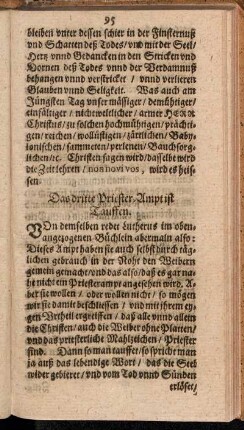 95
bleiben vnter dessen schier in der Finsternuß
vnd Schatten deß Todes / vnd mit der Seel /
Hertz vnnd Gedancken in den Stricken vnd
Hörnen deß Todes vnnd der Verdamnuß
behangen vnnd verstricket / vnnd verlieren
Glauben vnnd Seligkeit. Was auch am
Jüngsten Tag vnser müssiger / demühtiger /
einfältiger / nicht weltlicher / armer HERR
Christus / zu solchen hochmühtigen / präch-
tigen / reichen / wollüstigen / zärtlichen / Baby-
lonischen / sammeten / perlenen / Bauchsorg-
lichen / ꝛc. Christen sagen wird / dasselbe wird
die Zeit lehren / non novi vos, wird es heis-
sen.
Das dritte Priester-Ampt ist
Tauffen.
VOn demselben redet Lutherus im oben-
angezogenen Büchlein abermals also:
Dieses Ampt haben sie auch selbst durch täg-
lichen gebrauch in der Noht den Weibern
gemein gemacht / vnd das also / daß es gar na-
he nicht ein Priesterampt angesehen wird. A-
ber sie wollen / oder wollen nicht / so mögen
wir sie damit beschliessen / vnd mit jhrem ey-
gen Vrtheil ergreiffen / daß alle vnnd allein
die Christen / auch die Weiber ohne Platten /
vnd das priesterliche Mahlzeichen / Priester
sind. Dann so man tauffet / so spricht man
ja auß das lebendige Wort / das die Seel
wider gebieret / vnd vom Tod vnnd Sünden
erlöset /